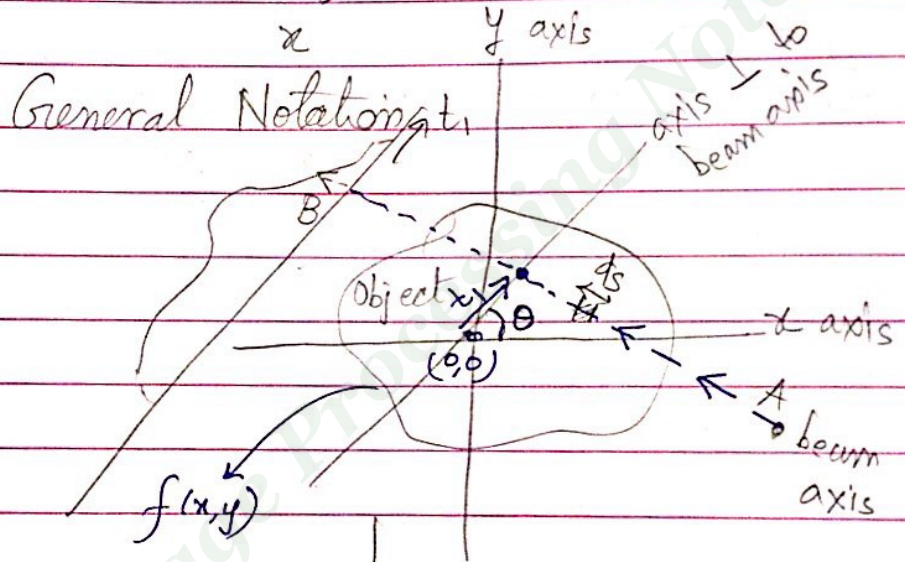 x
y axis
General Notation
t₁
axis ⊥ to
beam axis
B
Object
ds
θ
x axis
(0,0)
A
beam
axis
f(x,y)